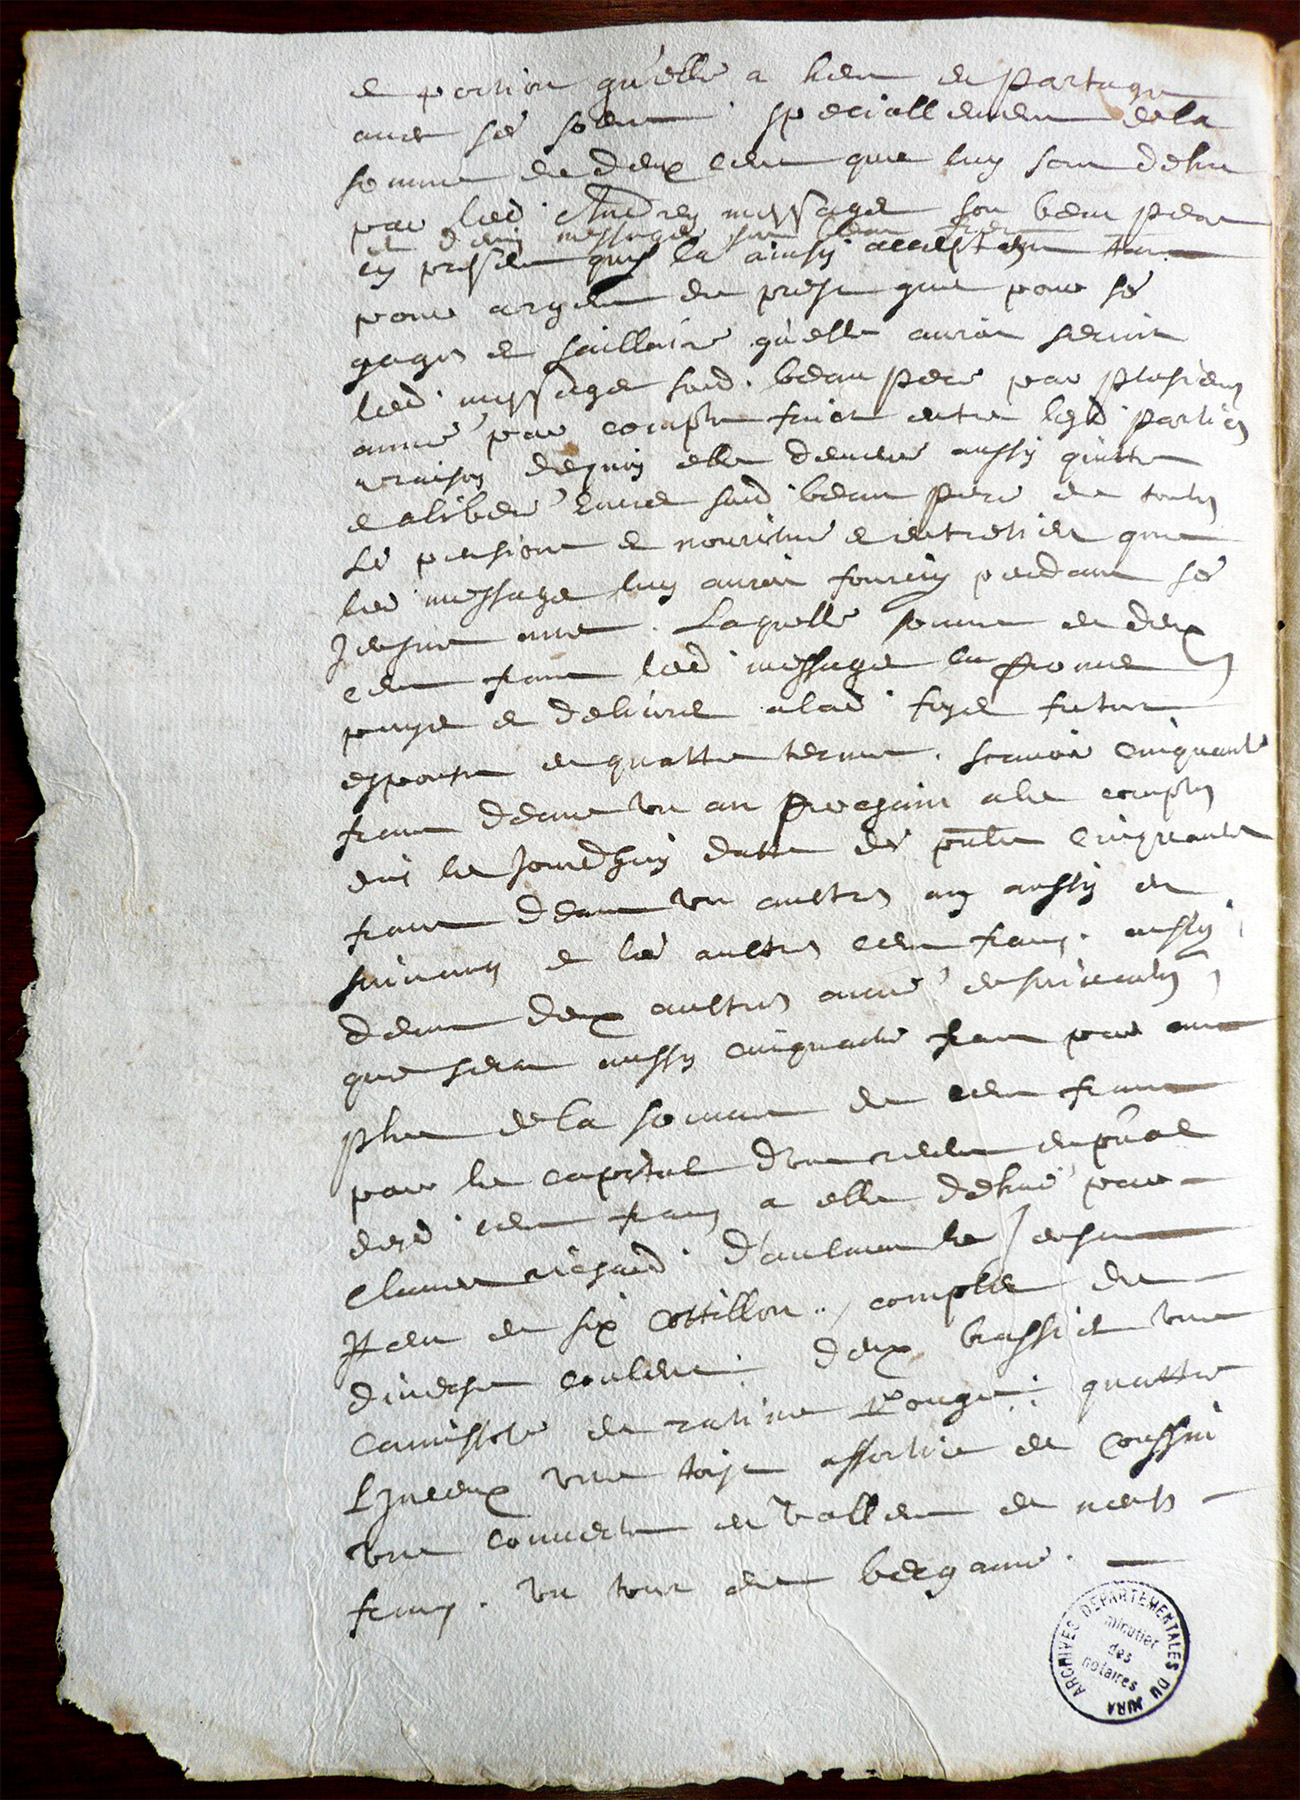 et portion qu'elle a heu en partage
avec ses soeurs speciallement de la
somme de deux cent que luy sont dehu
par led. Andrey Message son beau pere
et Message son beau frere
cy present qui la ainsy accepter tan
pour argent de prest que pour ses
gages et saillaire qu'elle auroit servir
led. Message sond. beau pere par plusieurs
année par compte faict entre lesd. parties
a raison dequoy elle demeure aussy quitte
et alibere envers sond. beau pere de toutes
les pensions et nourriture et entretien que
led. Message luy auroit fourny pendant ses
jeusne anne. Laquelle somme de deux
cent franc led. Message la promet
payer et delivre a lad. foye future
espouse en quattre terme. scavoir cinquante
franc dans un an prochain a le compter
dois le jourd'huy datte des pntes cinquante
franc dans un aultres an aussy en
suivans et les aultres cent franc. aussy
dans deux aultres année ensuivantes
que seront aussy cinquante franc par an
plus de la somme de cent franc
pour le capital d'une rente en pnal
desd. cent franc a elle dehue par
Claude Richard d'aulmont le jeusne
Item de six cottillon.. complet de
diverse couleur. deux brassiet une
camissole de ratine Rouge. quattre
Linceux une toise assortire de coussin
une couverte de valleur de neufs
franc. un tour de bergame.
ARCHIVES DEPARTEMENTALES DU JURA
minutier
des
notaires